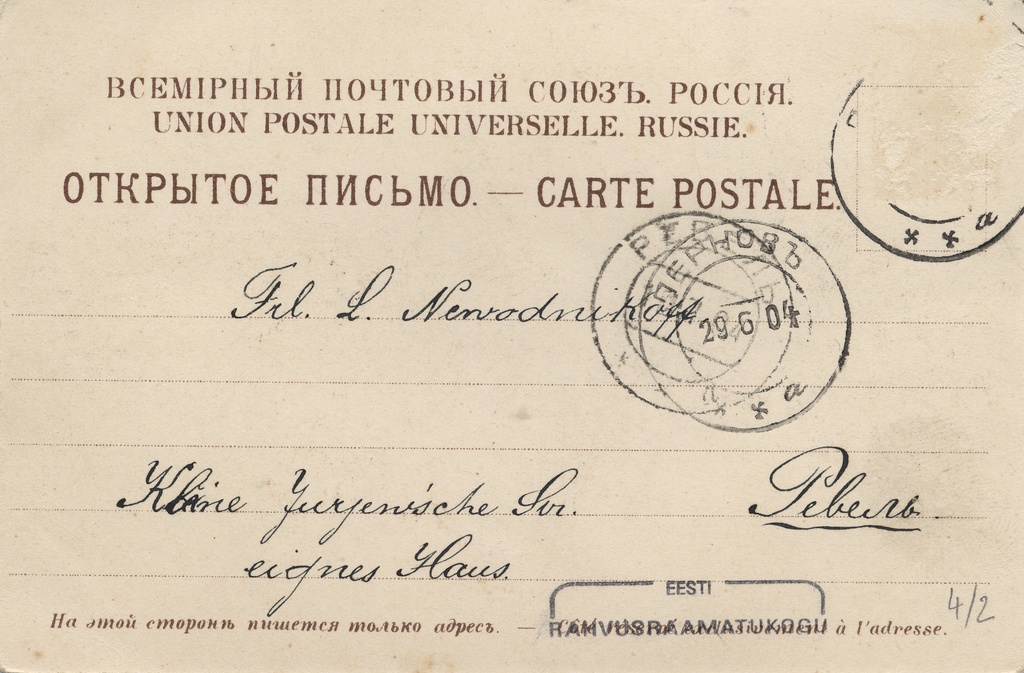 ВСЕМІРНЫЙ ПОЧТОВЫЙ СОЮЗЪ. РОССІЯ.
UNION POSTALE UNIVERSELLE. RUSSIE.
ОТКРЫТОЕ ПИСЬМО. — CARTE POSTALE.
a
ПЕРНОВЪ
29.6 04
a
a
Frl. L. Newodnikoff
Kleine Jurjew'sche Str.
Ревель.
eignes Haus.
EESTI
RAHVUSRAAMATUKOGU
4/2
На этой сторонѣ пишется только адресъ. — à l'adresse.